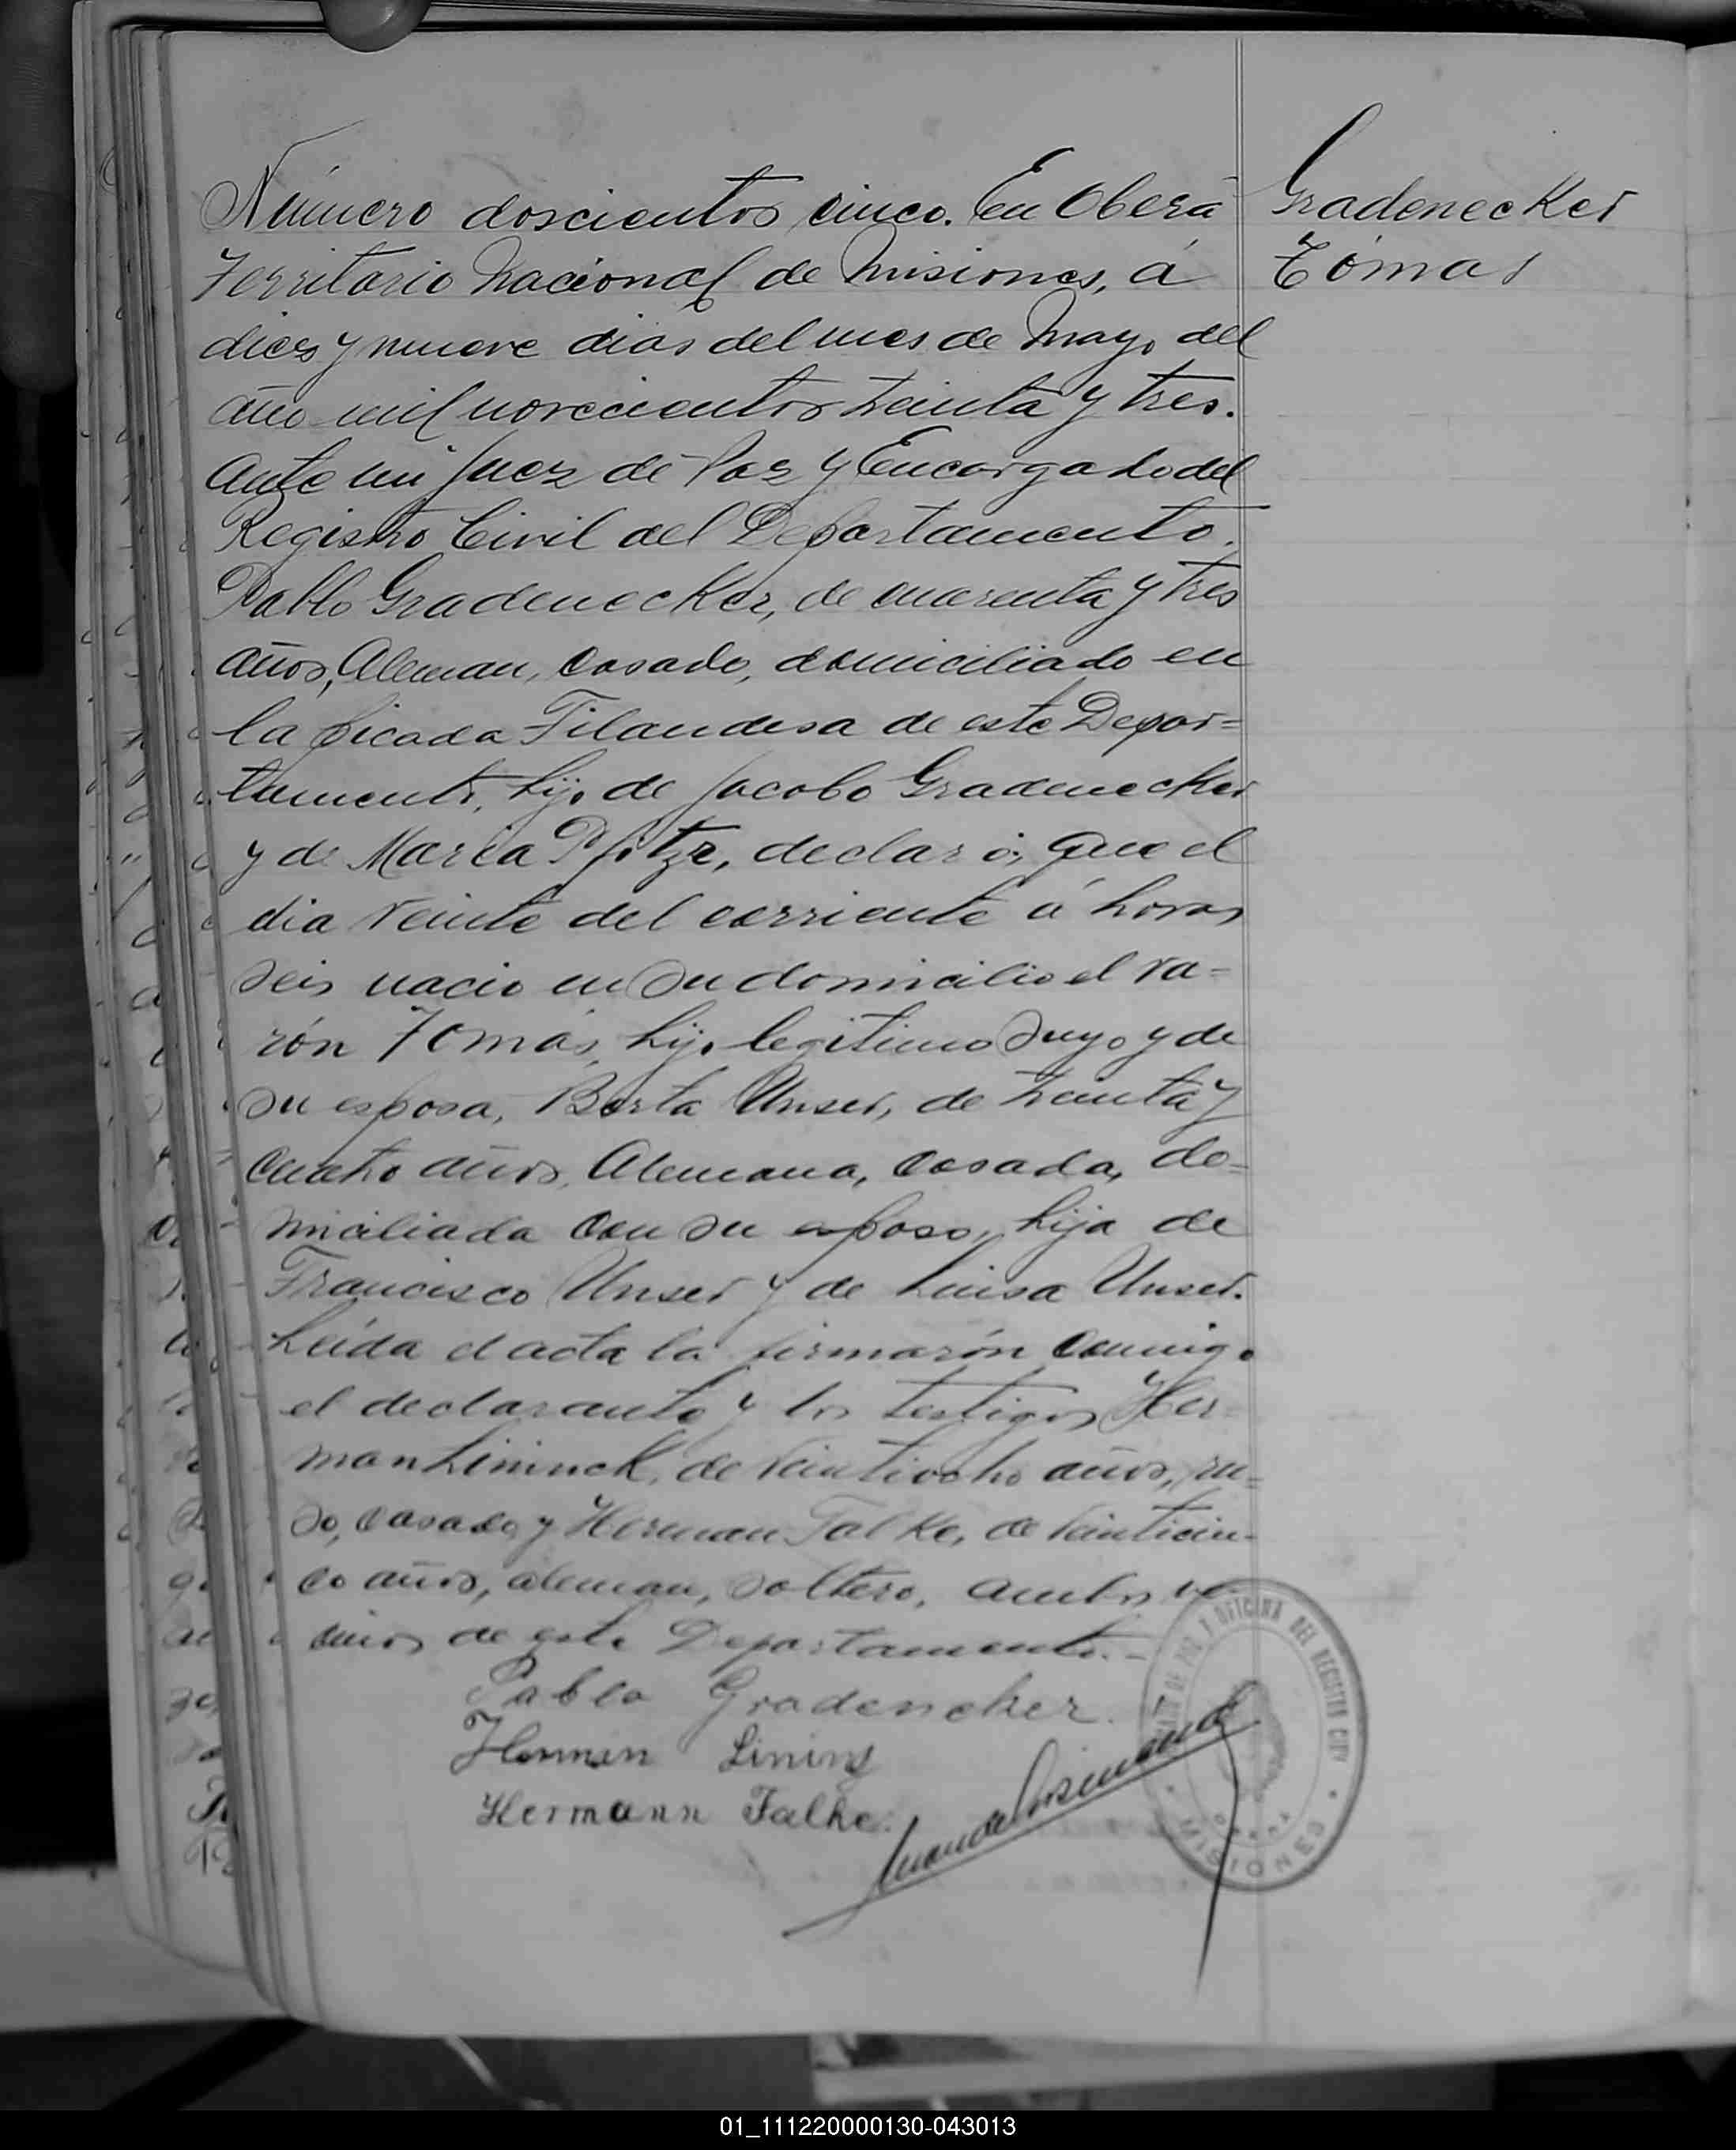 Número doscientos cinco. En Oberá
Territorio Nacional de Misiones, á
diez y nueve dias del mes de Mayo del
año mil novecientos treinta y tres.
Ante mi Juez de Paz y Encargado del
Registro Civil del Departamento.
Pablo Gradenecker, de cuarenta y tres
años, Aleman, casado, domiciliado en
la picada Filandesa de este Depar=
tamento, hijo de Jacobo Gradenecker
y de Maria, declaró; Que el
dia veinte del corriente á horas
seis nacio en su domicilio el va=
rón Tomás, hijo legitimo suyo y de
su esposa, Berta Unser, de treinta y
cuatro años, Alemana, casada, do=
miciliada con su esposo, hija de
Francisco Unser y de Luisa Unser.
Leida el acta la firmarón conmigo
el declarante y los testigos Her=
man, de veintiocho años, ru=
so, casado y Herman Falke, de veinticin=
co años, aleman, soltero, ambos ve
cinos de este Departamento.-
Pablo Gradenecker.
Herman Lining
Hermann Falke.
Gradenecker
Tómas
DE PAZ Y OFICINA DEL REGISTRO CIV
OBERA
MISIONES
01_111220000130-043013